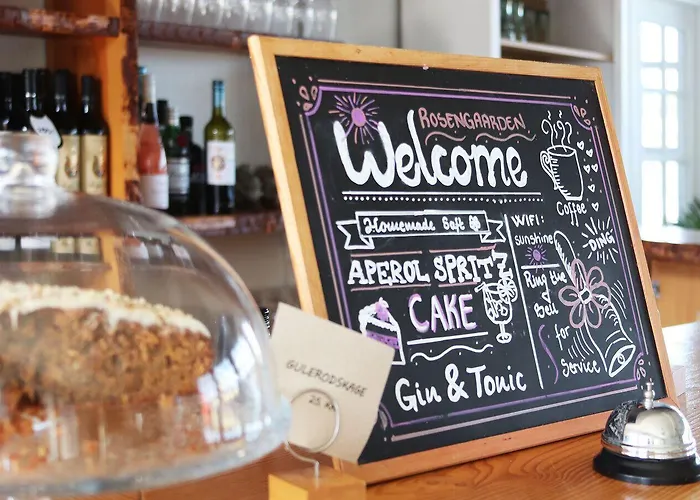 ROSENGAARDEN
Welcome
Coffee
Homemade Saft
WIFI:
sunshine
"DING"
APEROL SPRITZ
CAKE
Ring the
Bell
for
Service
Gin & Tonic
GULERODSKAGE
25 KR